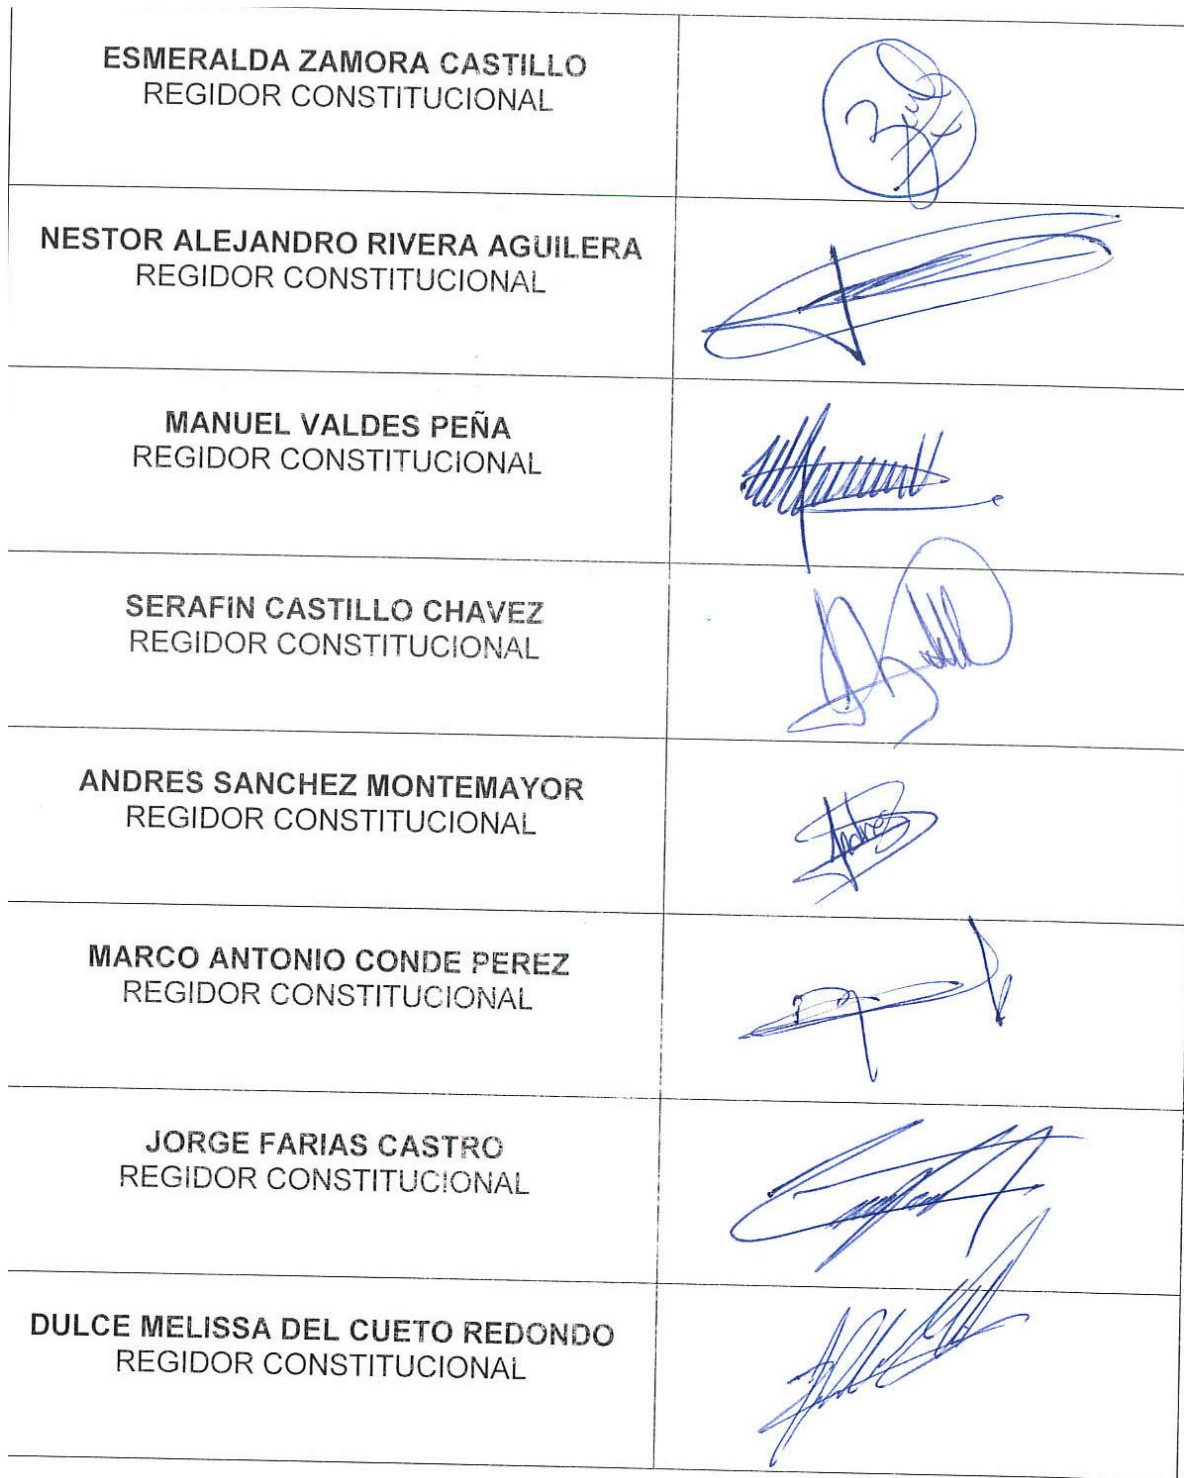 ESMERALDA ZAMORA CASTILLO
REGIDOR CONSTITUCIONAL
NESTOR ALEJANDRO RIVERA AGUILERA
REGIDOR CONSTITUCIONAL
MANUEL VALDES PEÑA
REGIDOR CONSTITUCIONAL
SERAFIN CASTILLO CHAVEZ
REGIDOR CONSTITUCIONAL
ANDRES SANCHEZ MONTEMAYOR
REGIDOR CONSTITUCIONAL
Andres
MARCO ANTONIO CONDE PEREZ
REGIDOR CONSTITUCIONAL
JORGE FARIAS CASTRO
REGIDOR CONSTITUCIONAL
DULCE MELISSA DEL CUETO REDONDO
REGIDOR CONSTITUCIONAL